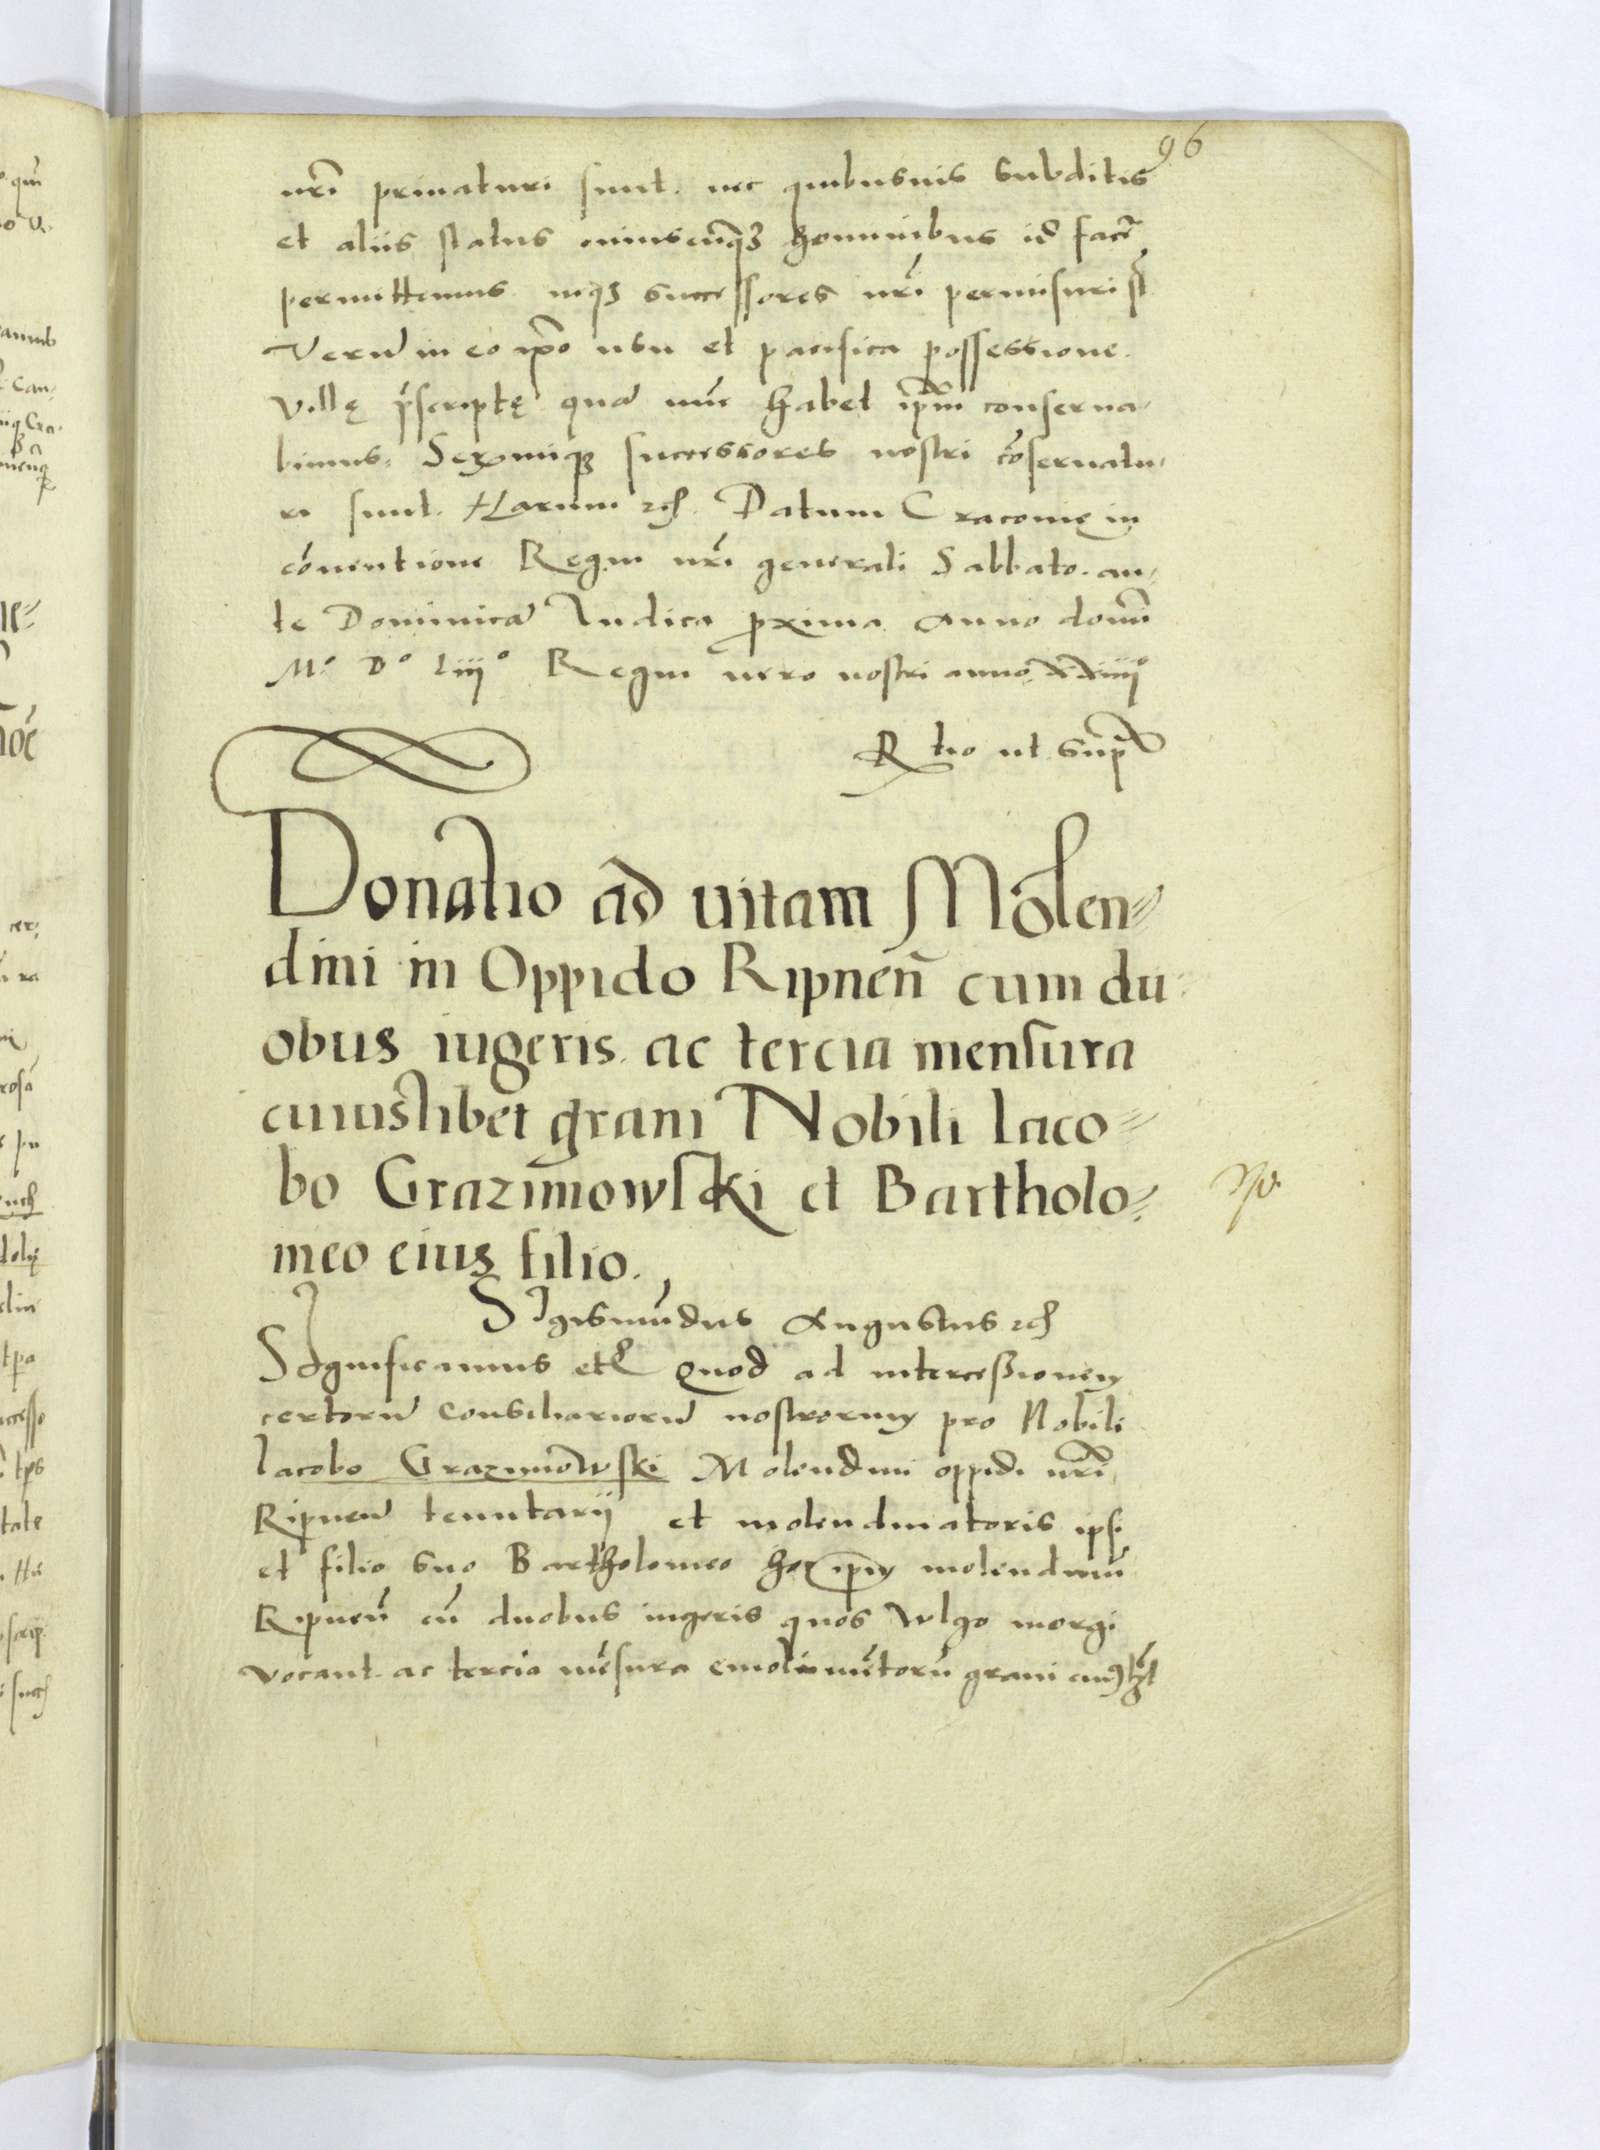 96
nr̃i priuaturi sunt. nec quibusuis subditis
et aliis status cuiuscunq3 hominibus id facẽ
permittemus neq3 successores nr̃i permisuri st̃
Verũ in eo ip̃o usu et pacifica possessione
villę p̃scriptę quã nũc habet ip̃m conserua-
bimus. Serenimiq3 successores nostri cõseruatu-
ri sunt. Harum etc. Datum Cracouię in
cõuentione Regni nr̃i generali Sabbato an-
te Dominicã Iudica proxima Anno domĩ
M° D° Liii° Regni uero nostri anno xxiiii°
Rtio ut supra
Donatio ad uitam Molen=
dini in Oppido Ripneñ cum du-
obus iugeris. ac tercia mensura
cuiuslibet grani Nobili Iaco=
bo Grazimowski et Bartholo=
meo eius filio.
SIgismũdus Augustus etc
SIgnificamus etc̃ Quod ad intercessionem
certorũ consiliariorũ nostrorum pro Nobili
Iacobo Grazimowski Molendini oppidi nr̃i
Ripneñ tenutarij et molendinatoris ipsi
et filio suo Bartholomeo molendinũ
Ripneñ cũ duobus iugeris quos wlgo morgi
vocant. ac tercia mẽsura emolimẽtorũ grani cui9libet